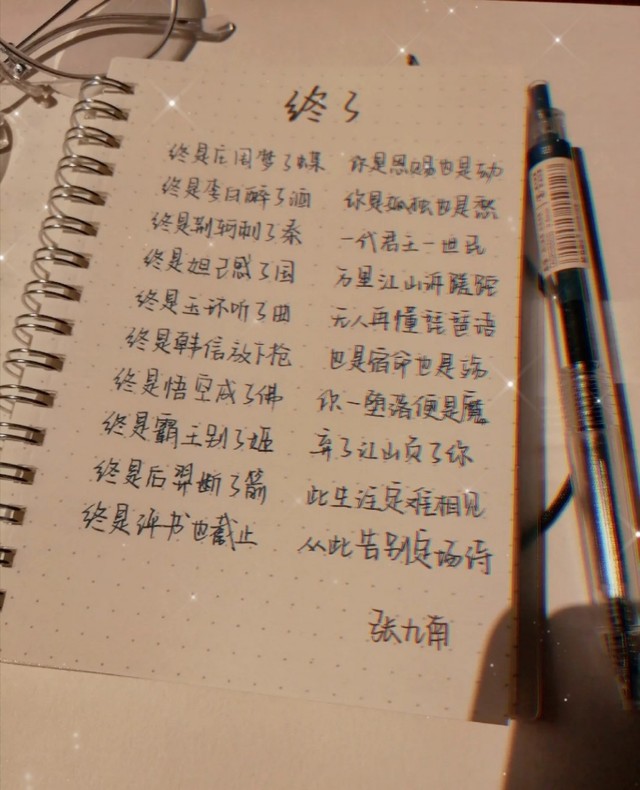 终了
终是庄周梦了蝶 你是恩赐也是劫
终是李白醉了酒 你是孤独也是愁
终是荆轲刺了秦 一代君王一世民
终是妲己惑了国 万里江山诉蹉跎
终是玉环听了曲 无人再懂琵琶语
终是韩信放下枪 也是宿命也是
终是悟空成了佛 你一堕落便是魔
终是霸王别了姬 弃了江山负了你
终是后羿断了箭 此生注定难相见
终是评书也截止 从此告别定场诗
张九南